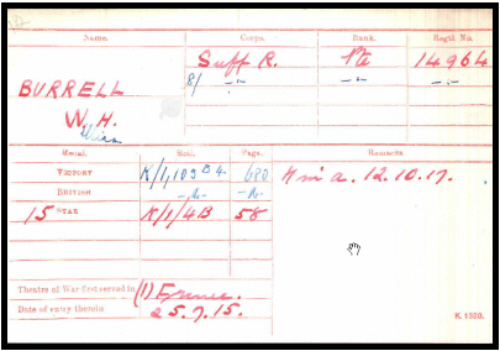 Name. Corps. Rank. Regtl. No.
Suff R. Pte 14964
BURRELL 8/ -"- -"- -"-
W. H.
Medal. Roll. Page. Remarks
VICTORY K/1,103 B4 680 K in a. 12.10.17.
BRITISH -do- -do-
15 STAR K/1/4B 58
Theatre of War first served in (1) France.
Date of entry therein 25.7.15.
K. 1380.